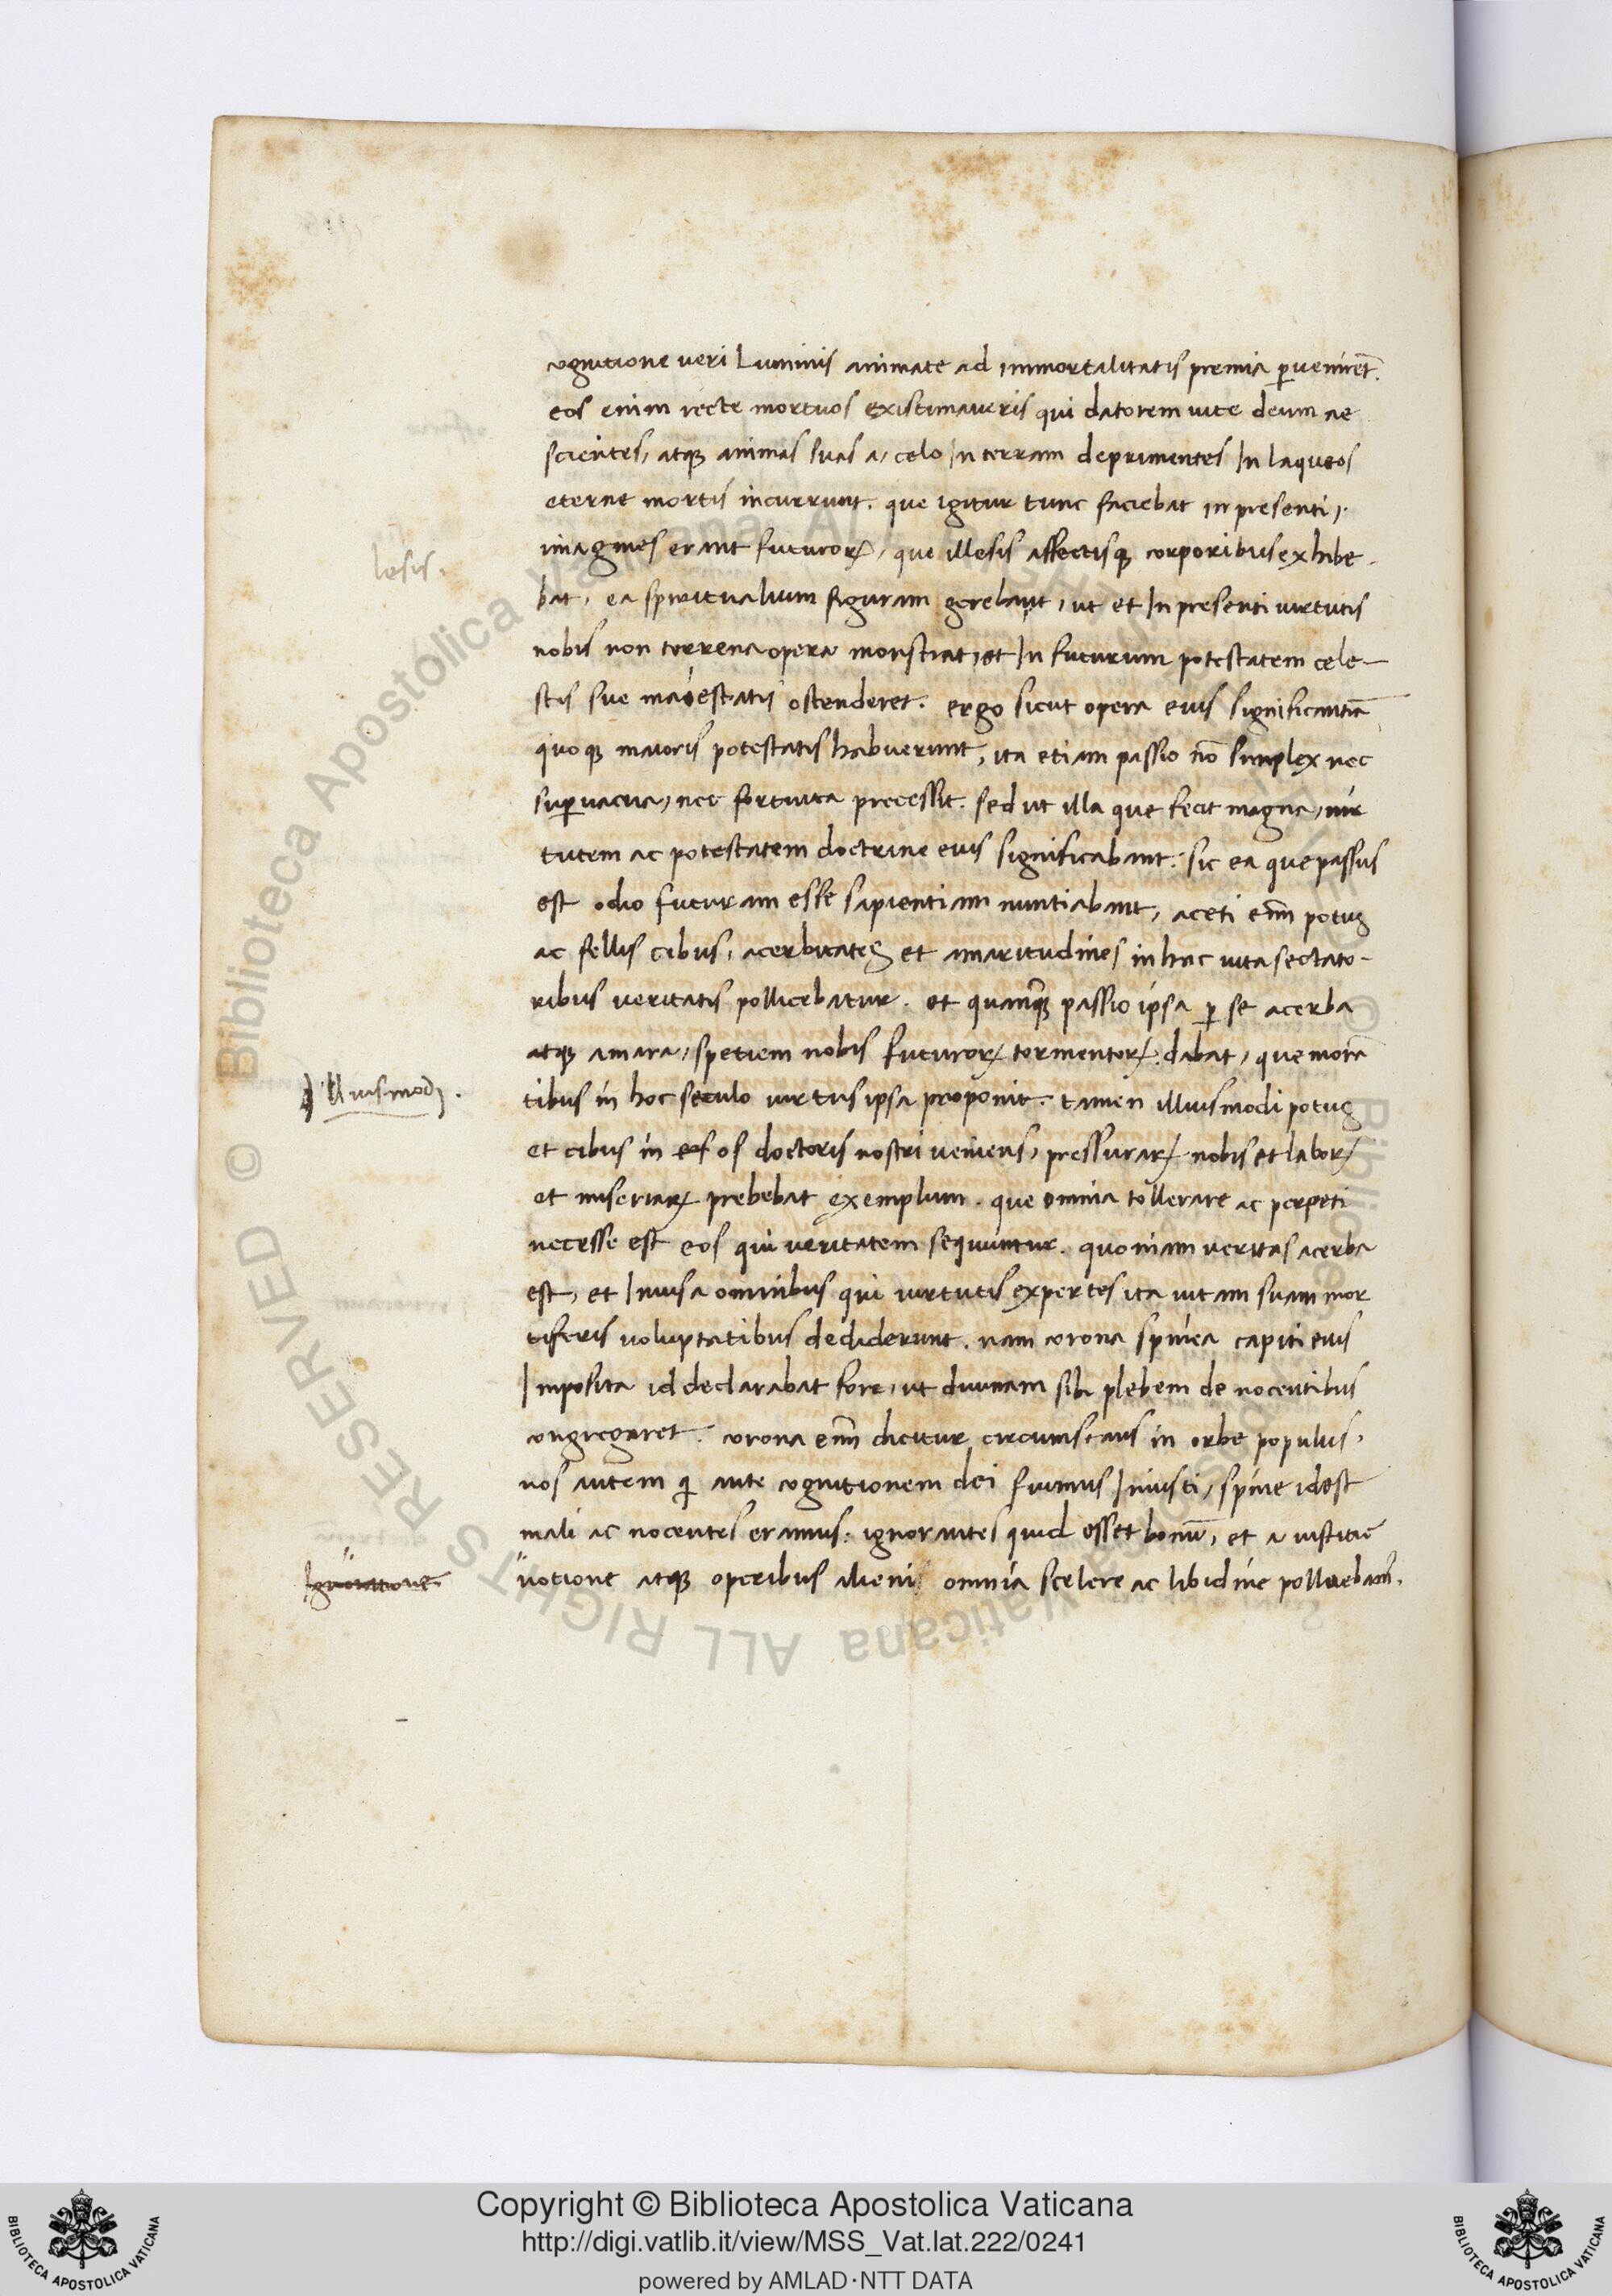 cognitione veri Luminis animate ad immortalitatis premia ꝑvenirẽt.
eos enim recte mortuos existimaveris qui datorem vite deum ne
scientes, atqꝫ animas suas a, celo In terram deprimentes In laqueos
eterne mortis incurrunt. que igitur tunc faciebat in presenti,
imagines erant futuroꝝ, que illesis affectisqꝫ corporibus exhibe-
lesis.
bat, ea spiritualium figuram gerebant, ut et In presenti virtutis
nobis non terrena opera monstrat, et In futurum potestatem cele-
stis sue maiestatis ostenderet. ergo sicut opera eius significantiã
quoqꝫ maioris potestatis habuerunt, ita etiam passio nõ simplex nec
suꝑvacua, nec fortuita precessit. sed ut illa que fecit magna, vir
tutem ac potestatem doctrine eius significabant. sic ea que passus
est odio futuram esse sapientiam nuntiabant, aceti enĩm potus
ac fellis cibus, acerbitates et amaritudines in hac vita sectato-
ribus veritatis pollicebatur. et quanqꝫ passio ipsa ꝑ se acerba
atqꝫ amara, spetiem nobis futuroꝝ tormentoꝝ dabat, que morã
Illiusmodj.
tibus in hoc seculo virtus ipsa proponit. tamen illiusmodi potus
et cibus in eos os doctoris nostri veniens, pressuraꝝ nobis et laboꝝ
et miseriaꝝ prebebat exemplum. que omnia tollerare ac perpeti
necesse est eos qui veritatem sequuntur. quoniam veritas acerba
est, et Invisa omnibus qui virtutis expertes ita vitam suam mor
tiferis voluptatibus dediderunt. nam corona spinea capiti eius
Imposita id declarabat fore, ut divinam sibi plebem de nocentibus
congregaret. corona enĩm dicitur circumstans in orbe populus,
nos autem qi ante cognitionem dei fuimus Iniusti, spine idest
mali ac nocentes eramus. ignorantes quid esset bonũ, et a iustitie
Ignoratione
notione atqꝫ operibus alieni omnia scelere ac libidine polluebam̃.
Copyright © Biblioteca Apostolica Vaticana
http://digi.vatlib.it/view/MSS_Vat.lat.222/0241
powered by AMLAD·NTT DATA
BIBLIOTECA APOSTOLICA VATICANA
BIBLIOTECA APOSTOLICA VATICANA
© Biblioteca Apostolica Vaticana ALL RIGHTS RESERVED